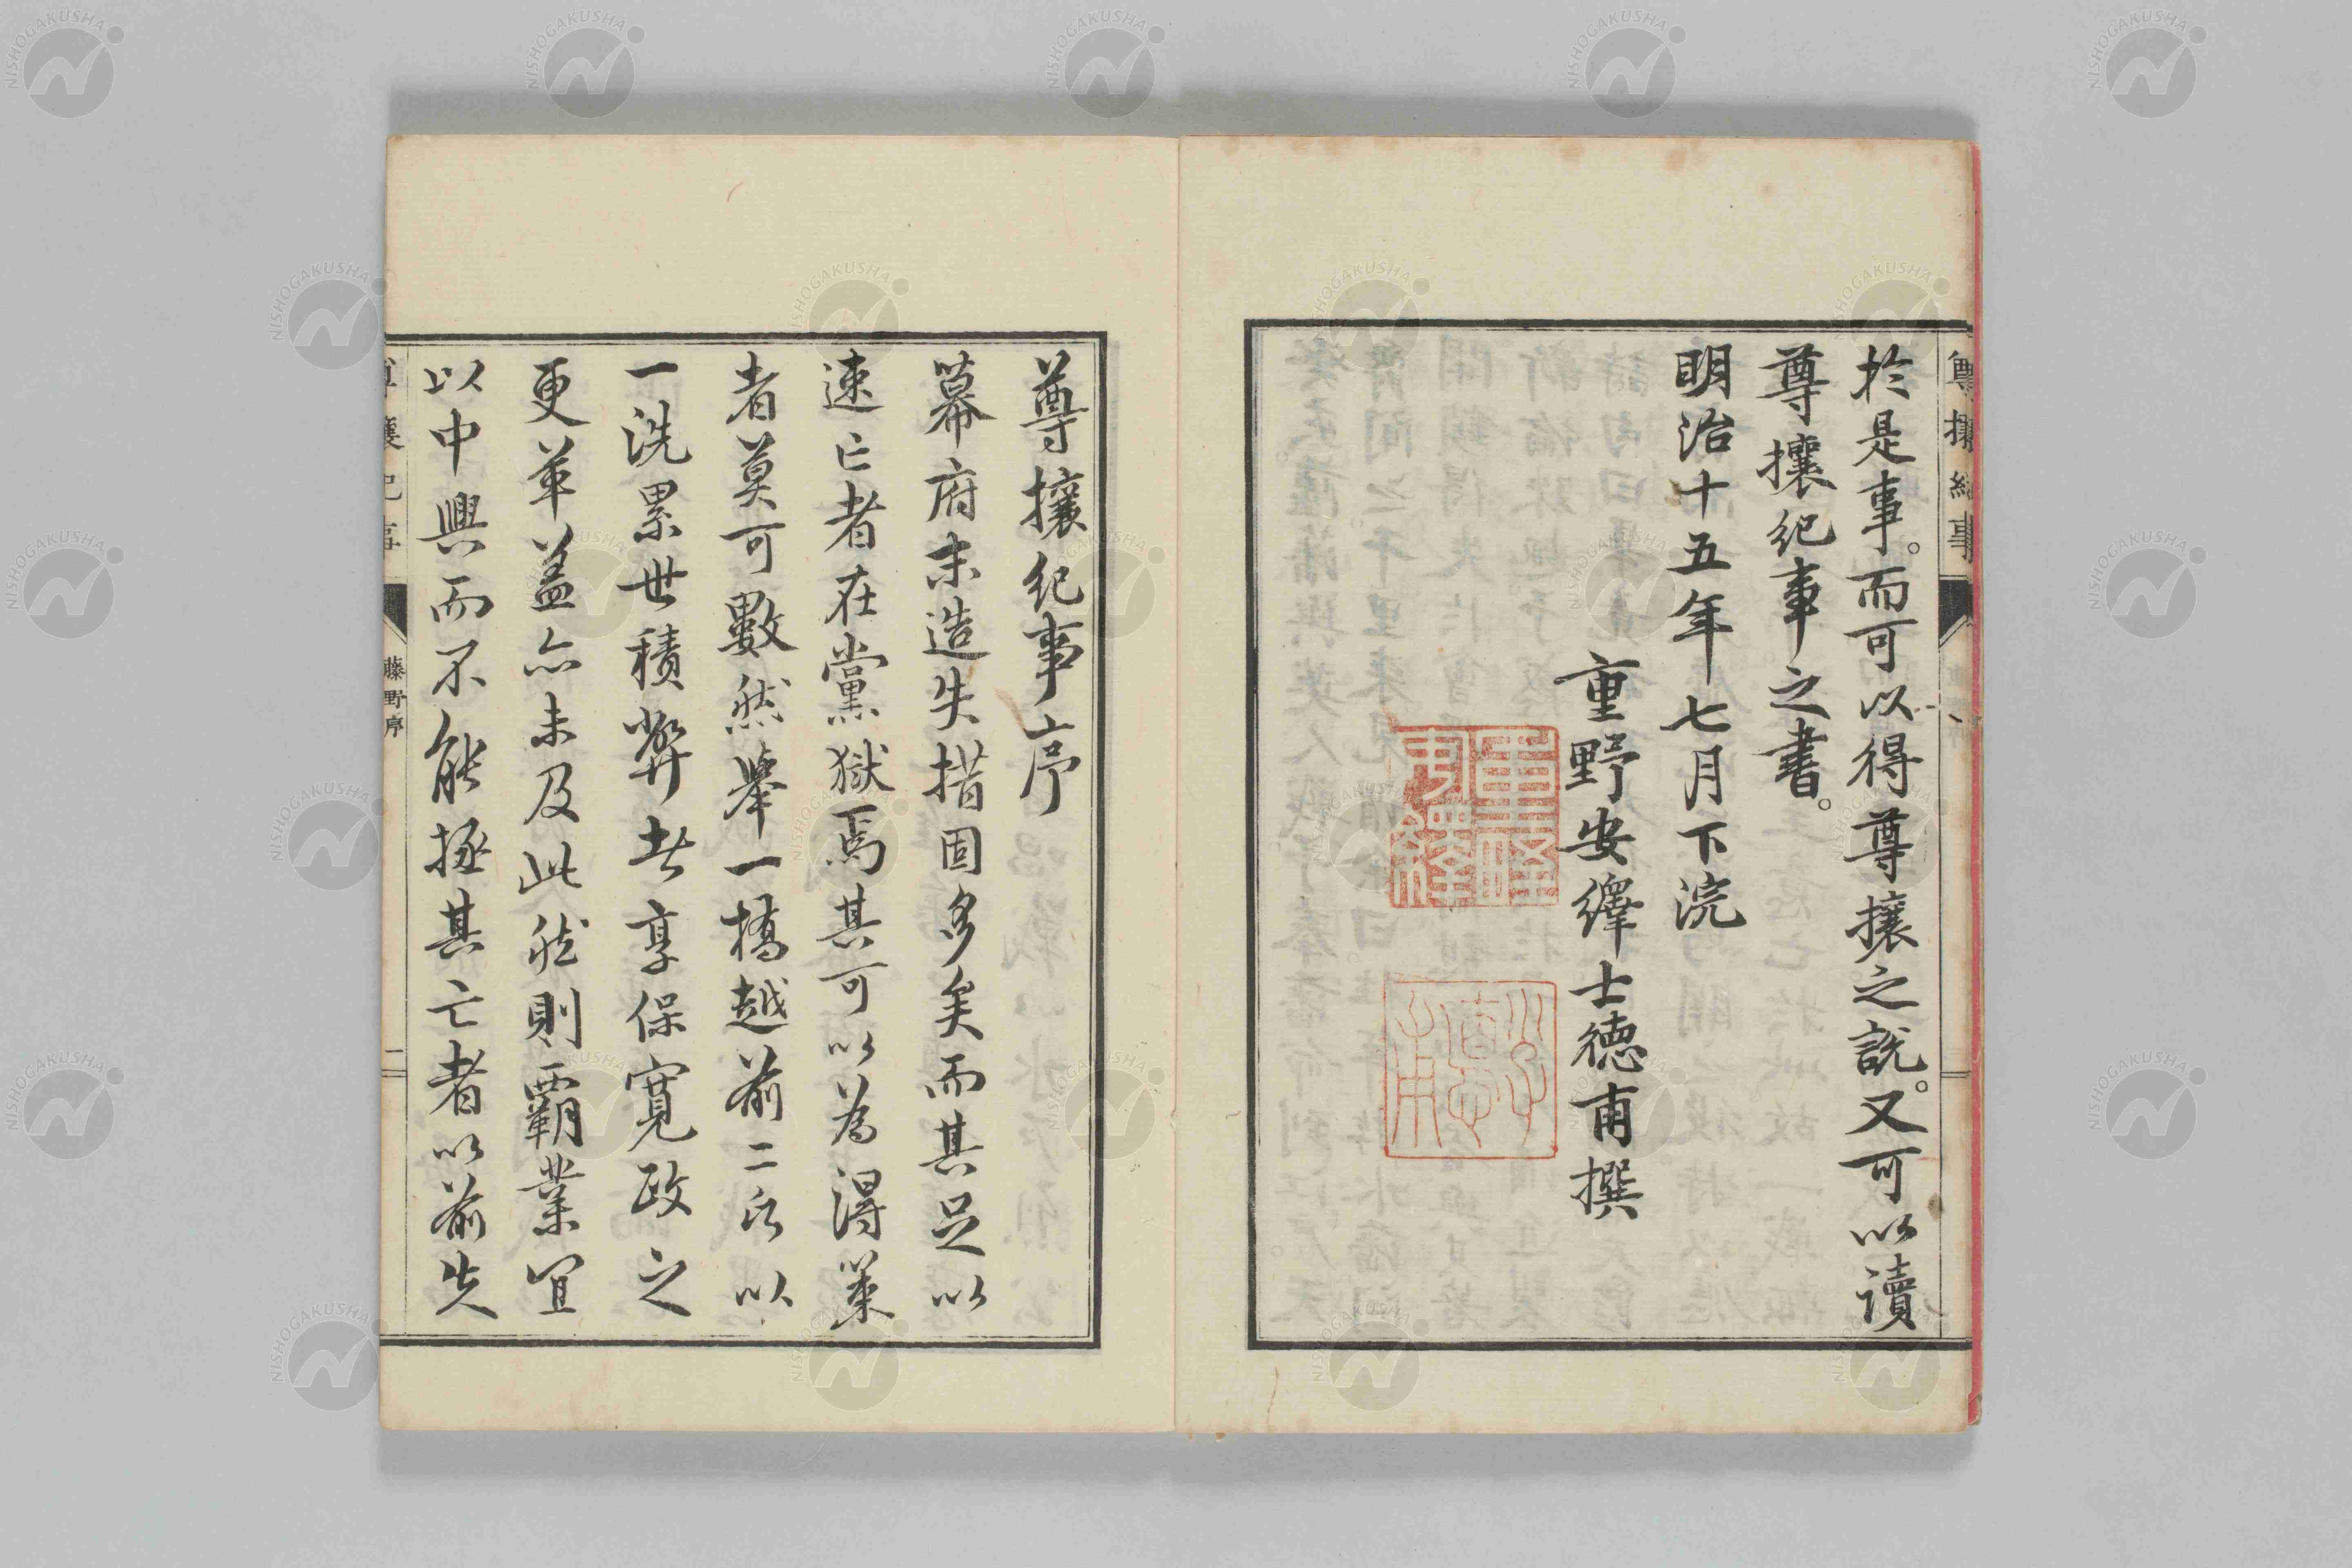 於是事。而可以得尊攘之説。又可以讀
尊攘紀事之書。
明治十五年七月下浣
重野安繹士德甫撰
尊攘紀事序
幕府末造失措固多矣而其足以
速亡者在黨獄焉其可以為得策
者莫可數然擧一橋越前二公以
一洗累世積弊者享保寛政之
更革盖亦未及此然則霸業宜
以中興而不能拯其亡者以前失
藤野序
二
NISHOGAKUSHA